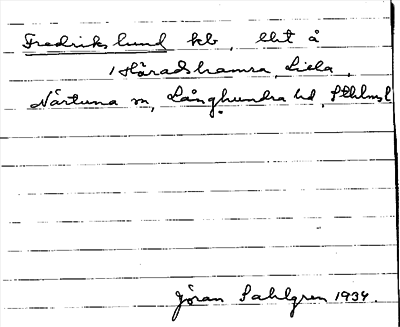 Fredrikslund kb, lht å
1 Häradshamra, Lilla,
Närtuna sn, Långhundra hd, Sthlms l
Jöran Sahlgren 1934.